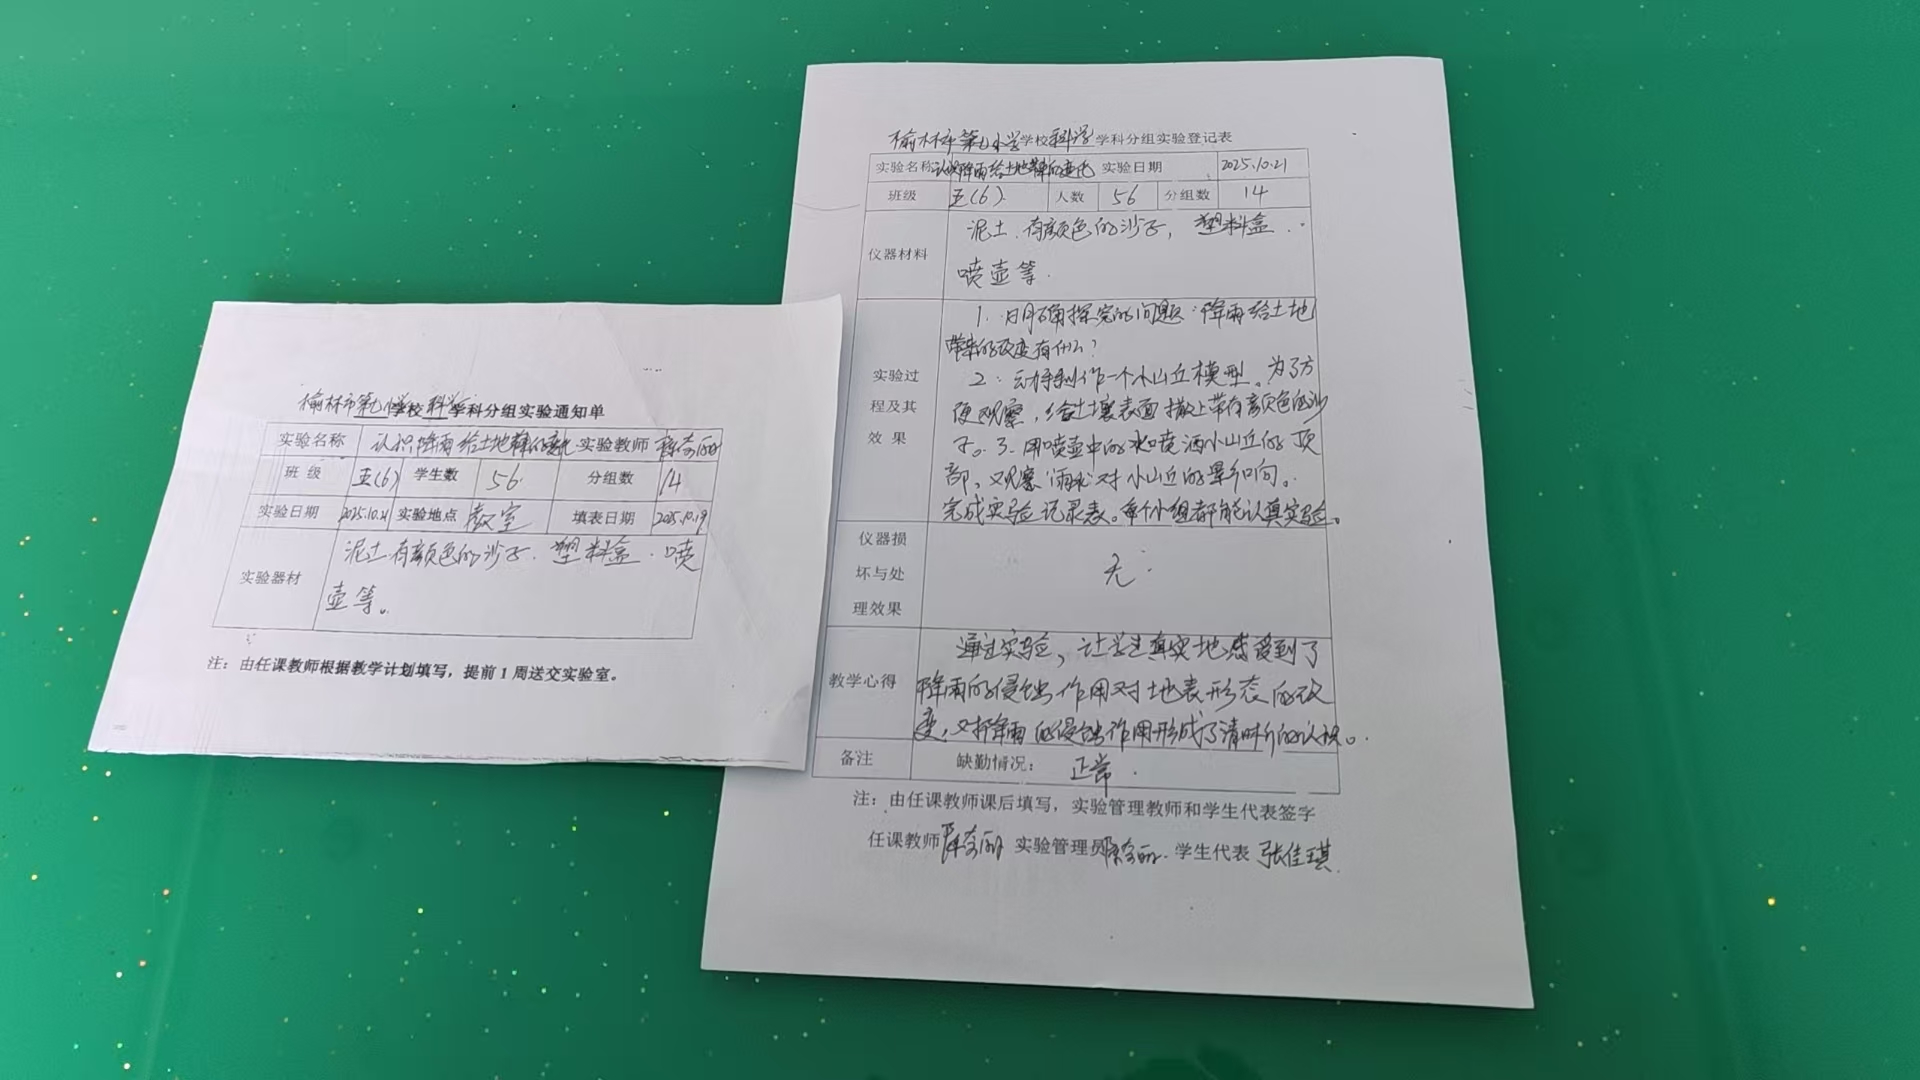 榆林市第七小学学校科学学科分组实验通知单
实验名称 认识降雨给土地带来的变化 实验教师
班 级 五(6) 学生数 56 分组数 14
实验日期 2025.10.21 实验地点 教室 填表日期 2025.10.19
实验器材 泥土.有颜色的沙子.塑料盒.喷
壶等。
注：由任课教师根据教学计划填写，提前1周送交实验室。
榆林市第七小学学校科学学科分组实验登记表
实验名称 认识降雨给土地带来的变化 实验日期 2025.10.21
班级 五(6) 人数 56 分组数 14
仪器材料 泥土.有颜色的沙子，塑料盒.
喷壶等.
实验过
程及其
效果
1.明确探究的问题:降雨给土地
带来的改变有什么?
2.动手制作一个小山丘模型。为了方
便观察,给土壤表面撒上带有颜色的沙
子。3.用喷壶中的水喷洒小山丘的顶
部,观察雨水对小山丘的影响。
完成实验记录表。每个小组都能认真实验。
仪器损
坏与处
理效果
无.
教学心得
通过实验,让学生真实地感受到了
降雨的侵蚀作用对地表形态的改
变,对降雨的侵蚀作用形成了清晰的认识。
备注 缺勤情况： 正常.
注：由任课教师课后填写，实验管理教师和学生代表签字
任课教师 实验管理员 学生代表 张佳琪